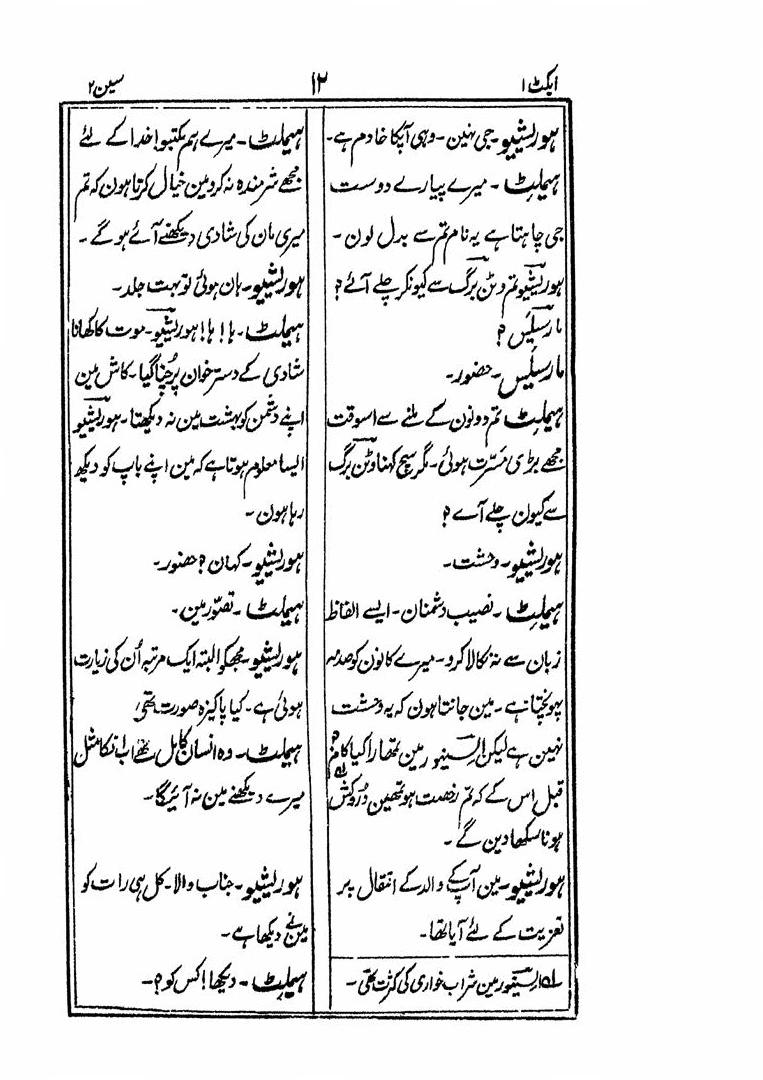 ایکٹ ۱
۱۲
سین ۲
ہوریشیو۔ جی نہین۔ وہی آپکا خادم ہے۔
ہیملٹ۔ میرے پیارے دوست
جی چاہتا ہے یہ نام تم سے بدل لون۔
ہوریشیو تم وٹن برگ سے کیونکر چلے آئے؟
مارسلیس؟
مارسلیس۔ حضور۔
ہیملٹ تم دونون کے ملنے سے اسوقت
مجھے بڑی مسرّت ہوئی۔ مگر سچ کہنا وٹن برگ
سے کیون چلے آے؟
ہوریشیو۔ وحشت۔
ہیملٹ۔ نصیب دشمنان۔ ایسے الفاظ
زبان سے نہ نکالا کرو۔ میرے کانون کو صدمہ
پہونچتا ہے۔ مین جانتا ہون کہ یہ وحشت
نہین ہے لیکن السینور مین تمھارا کیا کام؟
قبل اس کے کہ تم رخصت ہو تمھین دُردکش
ہونا سکھا دین گے۔
ہوریشیو۔ مین آپ کے والد کے انتقال پر
تعزیت کے لئے آیا تھا۔
السینور مین شراب خواری کی کثرت تھی۔
ہیملٹ۔ میرے ہم مکتبو! خدا کے لئے
مجھے شرمندہ نہ کرو مین خیال کرتا ہون کہ تم
میری مان کی شادی دیکھنے آئے ہو گے۔
ہوریشیو۔ ہان ہوئی تو بہت جلد۔
ہیملٹ۔ ہا! ہا! ہوریشیو۔ موت کا کھانا
شادی کے دسترخوان پر چُنا گیا۔ کاش مین
اپنے دشمن کو بہشت مین نہ دیکھتا۔ ہوریشیو
ایسا معلوم ہوتا ہے کہ مین اپنے باپ کو دیکھ
رہا ہون۔
ہوریشیو۔ کہان؟ حضور۔
ہیملٹ۔ تصوّر مین۔
ہوریشیو۔ مجھکو البتہ ایک مرتبہ اُن کی زیارت
ہوئی ہے۔ کیا پاکیزہ صورت تھی
ہیملٹ۔ وہ انسان کامل تھے اب انکا مثل
میرے دیکھنے مین نہ آئیگا۔
ہوریشیو۔ جناب والا۔ کل ہی رات کو
مین نے دیکھا ہے۔
ہیملٹ۔ دیکھا! کس کو؟۔